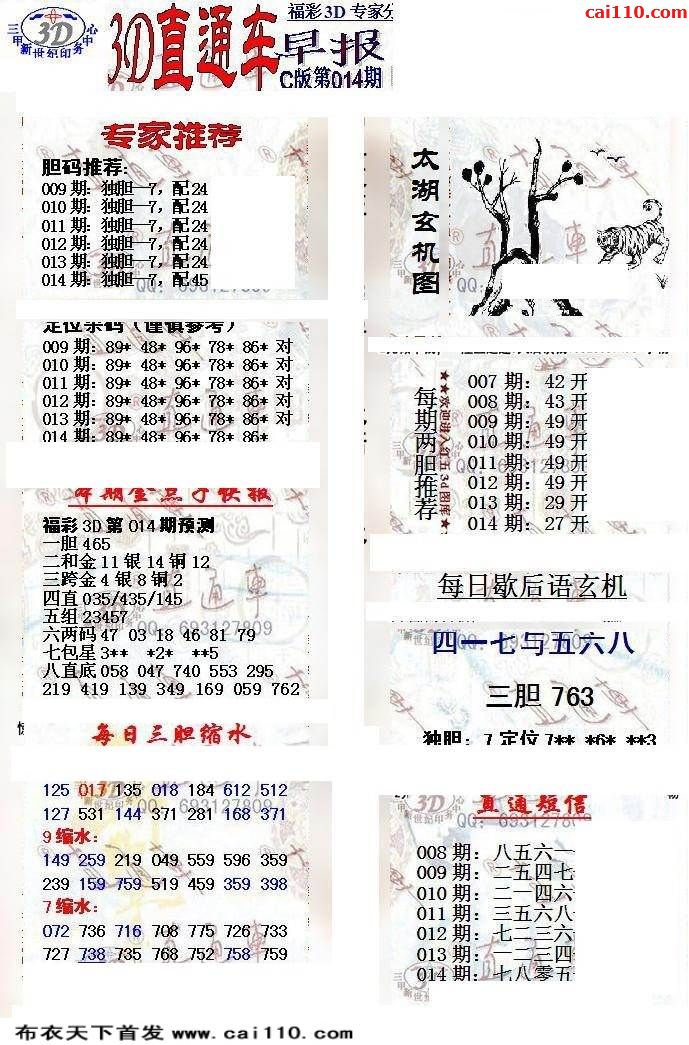 cai110.com
三甲新世纪印务中心
3D
3D直通车
福彩3D 专家
早报
C版第014期
专家推荐
胆码推荐:
009期: 独胆—7, 配24
010期: 独胆—7, 配24
011期: 独胆—7, 配24
012期: 独胆—7, 配24
013期: 独胆—7, 配24
014期: 独胆—7, 配45
QQ: 693127809
定位杀码 (谨慎参考)
009期: 89* 48* 96* 78* 86* 对
010期: 89* 48* 96* 78* 86* 对
011期: 89* 48* 96* 78* 86* 对
012期: 89* 48* 96* 78* 86* 对
013期: 89* 48* 96* 78* 86* 对
014期: 89* 48* 96* 78* 86*
福彩3D第014期预测
一胆465
二和金11银14铜12
三跨金4银8铜2
四直035/435/145
五组23457
六两码47 03 18 46 81 79
七包星3** *2* **5
八直底058 047 740 553 295
219 419 139 349 169 059 762
QQ: 693127809
每日三胆缩水
125 017 135 018 184 612 512
127 531 144 371 281 168 371
9缩水:
149 259 219 049 559 596 359
239 159 759 519 459 359 398
7缩水:
072 736 716 708 775 726 733
727 738 735 768 752 758 759
太湖玄机图
每期两胆推荐
★★欢迎进入红五3d图库★
007期: 42开
008期: 43开
009期: 49开
010期: 49开
011期: 49开
012期: 49开
013期: 29开
014期: 27开
每日歇后语玄机
四一七与五六八
三胆 763
独胆: 7 定位7** *6* **3
直通短信
QQ: 693127809
008期: 八五六一
009期: 二五四七
010期: 二一四六
011期: 三五六八
012期: 七二三六
013期: 一二三四
014期: 七八零五
布衣天下首发 www.cai110.com